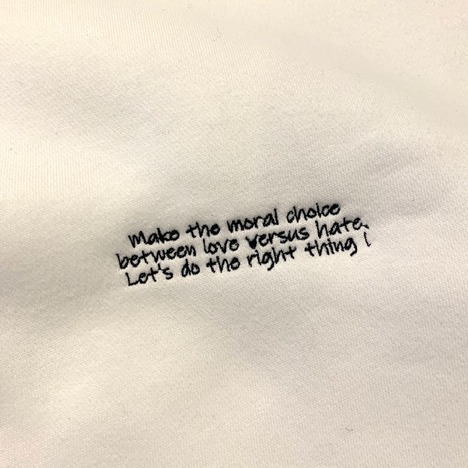 Make the moral choice
between love versus hate.
Let's do the right thing !